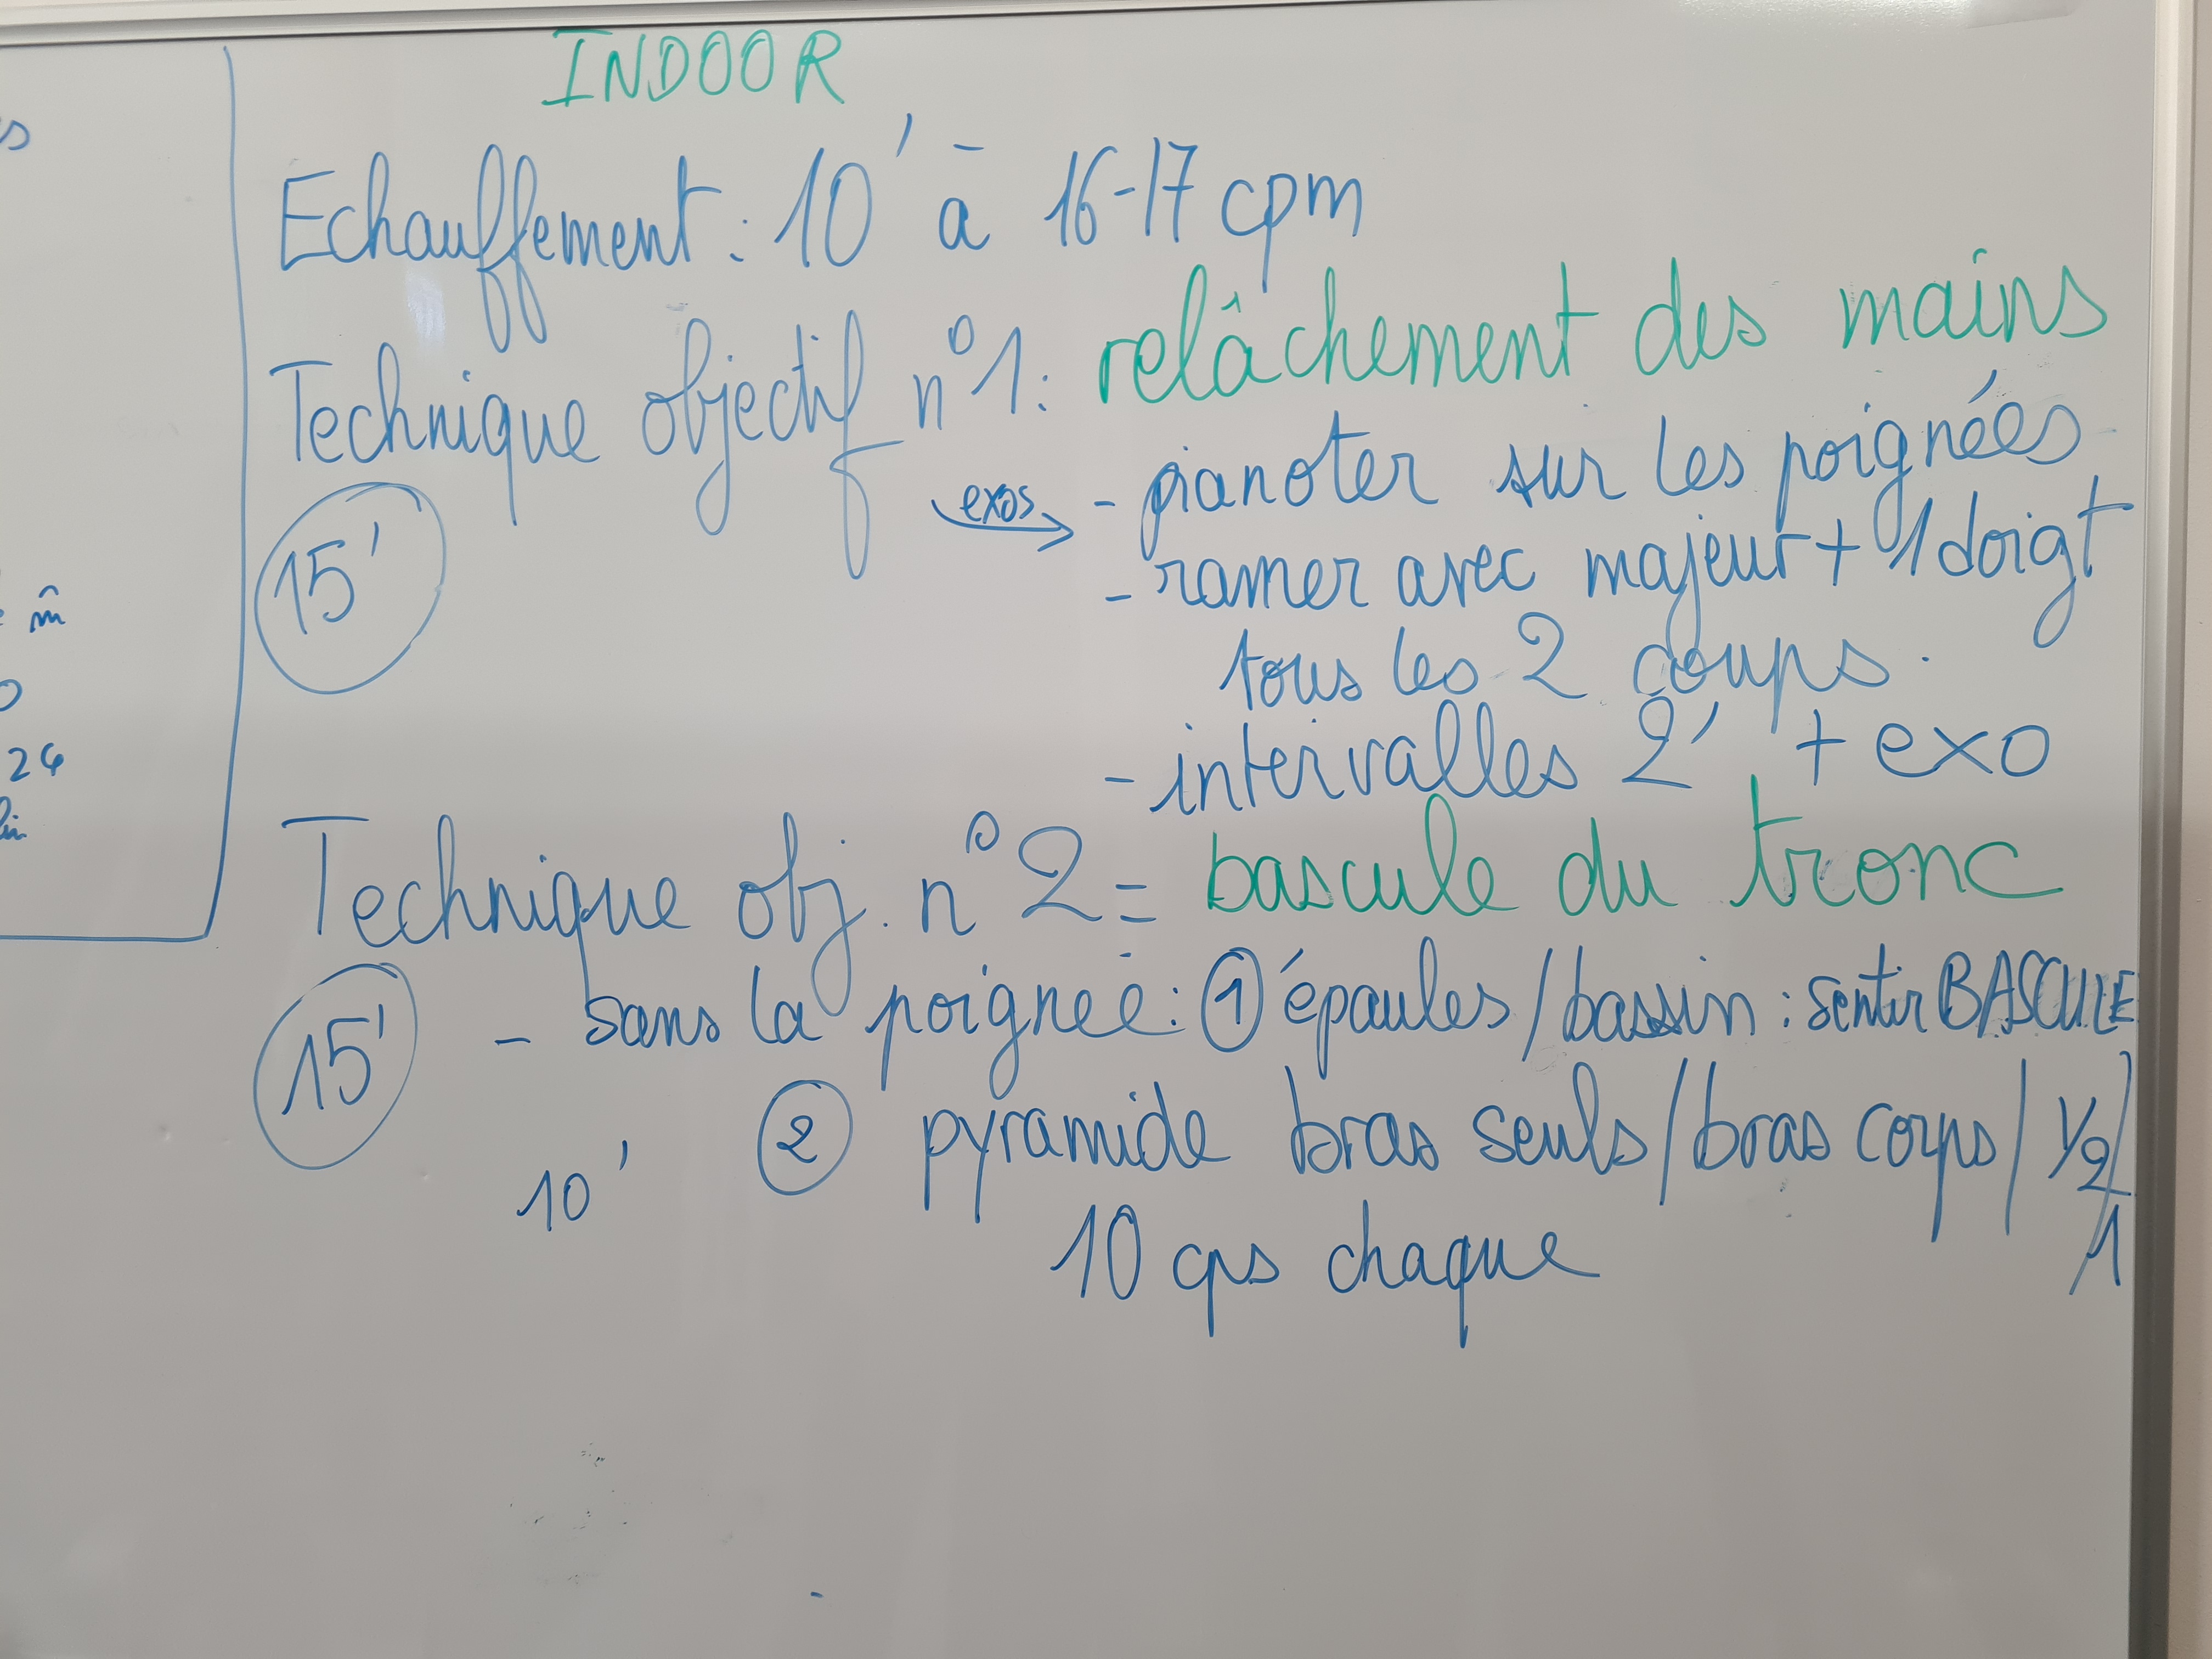 INDOOR
Echauffement : 10' à 16-17 cpm
Technique objectif n°1 : relâchement des mains
exos
- pianoter sur les poignées
15'
- ramer avec majeur + 1 doigt
tous les 2 coups.
- intervalles 2' + exo
Technique obj. n°2 = bascule du tronc
15'
- sans la poignée : 1 épaules / bassin : sentir BASCULE
10'
2 pyramide bras seuls / bras corps / 1/2 /
1
10 cps chaque
s
m̂
24